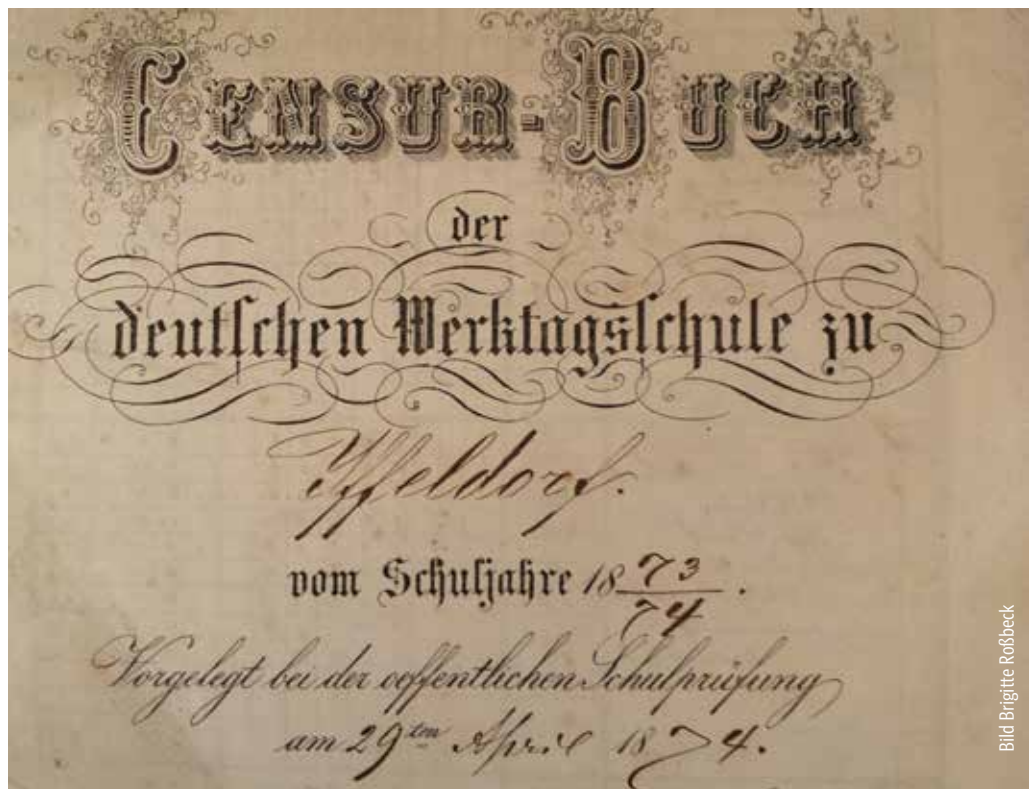 CENSUR-BUCH
der
deutschen Werktagsschule zu
Yffeldorf.
vom Schuljahre 18 73/74.
Vorgelegt bei der oeffentlichen Schulprüfung
am 29ten April 1874.
Bild Brigitte Roßbeck